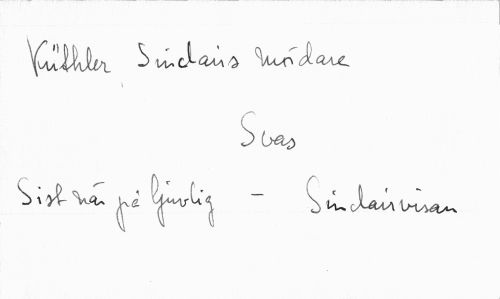 Küthler, Sinclairs mördare
Svas
Sist när på ljuvlig – Sinclairvisan